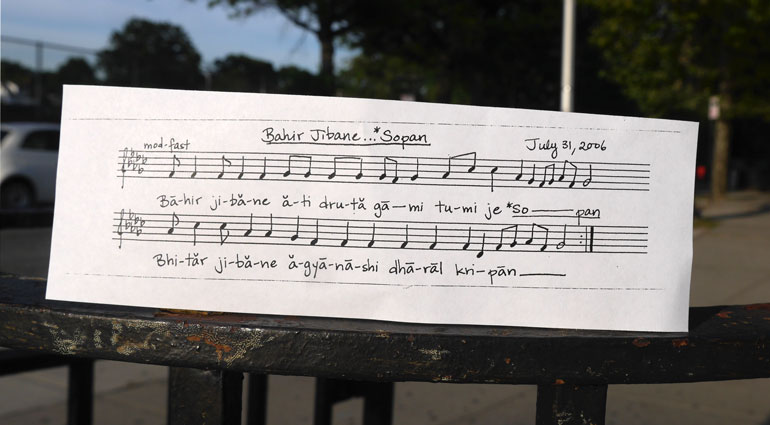 Bahir Jibane...*Sopan
mod-fast July 31, 2006
Bā-hir ji-bă-ne ă-ti dru-tă gā—mi tu-mi je *So——pan
Bhi-tăr ji-bă-ne ă-gyā-nā-shi dhā-răl kri-pān——